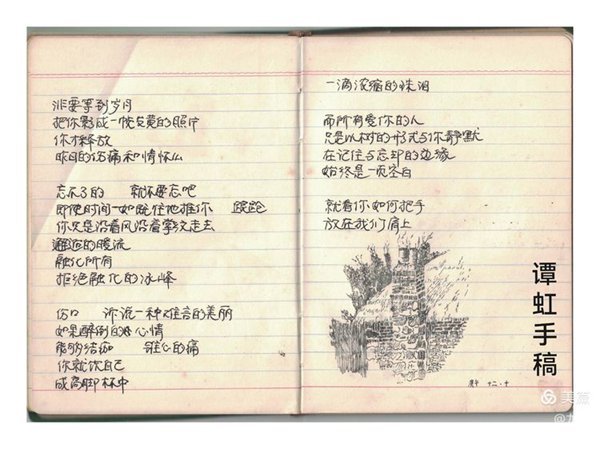 非要等到岁月
把你影成一帧发黄的照片
你才释放
昨日的伤痛和情怀么
忘不了的 就不要忘吧
即使时间一如既往地推你
你只是沿着风沿着掌纹走去
邂逅的暖流
融化所有
拒绝融化的冰峰
伤口 诉说一种难言的美丽
如果醉倒的心情
能够结痂 锥心的痛
你就饮自己
成高脚杯中
一滴浓缩的珠泪
而所有爱你的人
只是以树的形式与你静默
在记住与忘却的边缘
始终是一页空白
就看你如何把手
放在我们肩上
十二.十
谭虹手稿
美篇